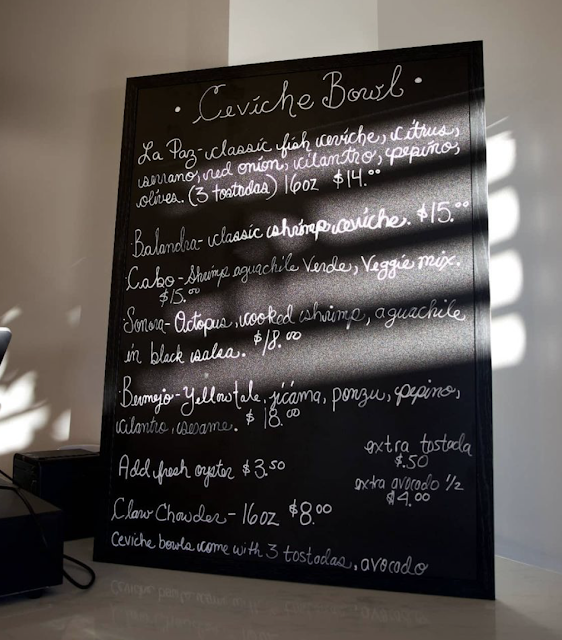 · Ceviche Bowl ·
La Paz - classic fish ceviche, citrus,
serrano, red onion, cilantro, pepino,
olives. (3 tostadas) 16oz $14.00
Balandra - classic shrimp ceviche. $15.00
Cabo - Shrimp aguachile Verde, Veggie mix.
$15.00
Sonora - Octopus, cooked shrimp, aguachile
in black salsa. $18.00
Bermejo - Yellowtale, jicáma, ponzu, pepino,
cilantro, sesame. $18.00
Add fresh oyster $3.50
extra tostada
$.50
extra avocado 1/2
$4.00
Clam Chowder - 16oz $8.00
Ceviche bowls come with 3 tostadas, avocado